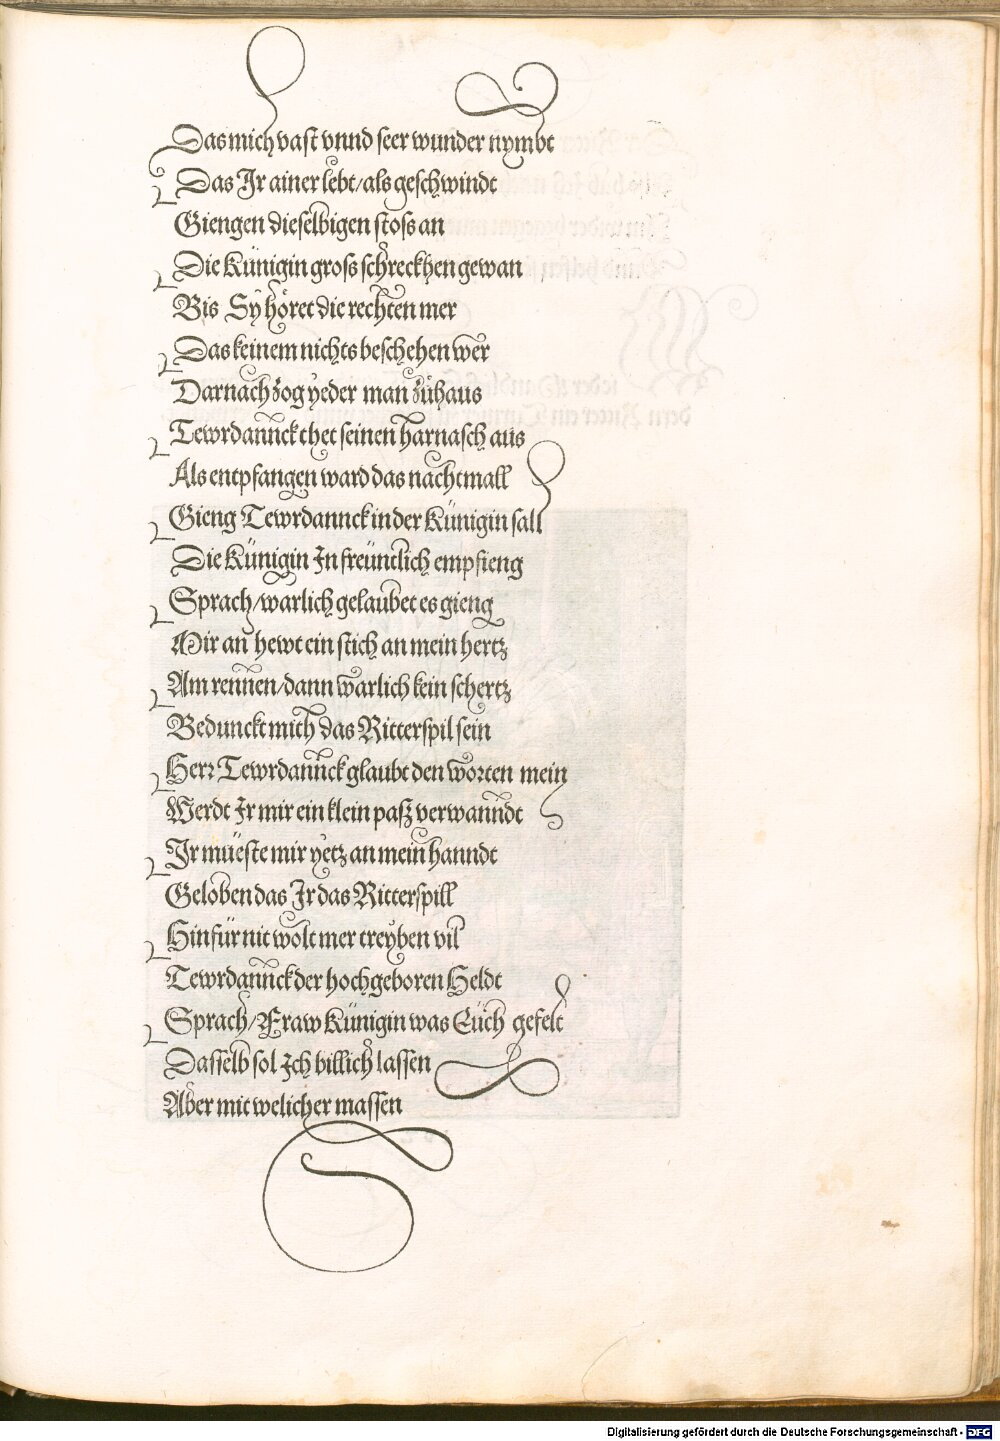 Das mich vast vnnd seer wunder nymbt
Das Jr ainer lebt/als geschwindt
Giengen dieselbigen stoss an
Die Künigin gross schreckhen gewan
Bis Sÿ höret die rechten mer
Das keinem nichts beschehen wer
Darnach zog yeder man zůhaus
Tewrdannck thet seinen harnasch aus
Als entpfangen ward das nachtmall
Gieng Tewrdannck in der Künigin sall
Die Künigin Jn freüntlich empfieng
Sprach/warlich gelaubet es gieng
Mir an hewt ein stich an mein hertz
Am rennen/dann warlich kein schertz
Bedunckt mich das Ritterspil sein
Herr Tewrdannck glaubt den worten mein
Werdt Jr mir ein klein paß verwanndt
Jr müeste mir yetz an mein hanndt
Geloben das Jr das Ritterspill
Hinfür nit wolt mer treyben vil
Tewrdannck der hochgeboren Heldt
Sprach/Fraw Künigin was Eüch gefelt
Dasselb sol Jch billich lassen
Aber mit welicher massen
Digitalisierung gefördert durch die Deutsche Forschungsgemeinschaft - DFG